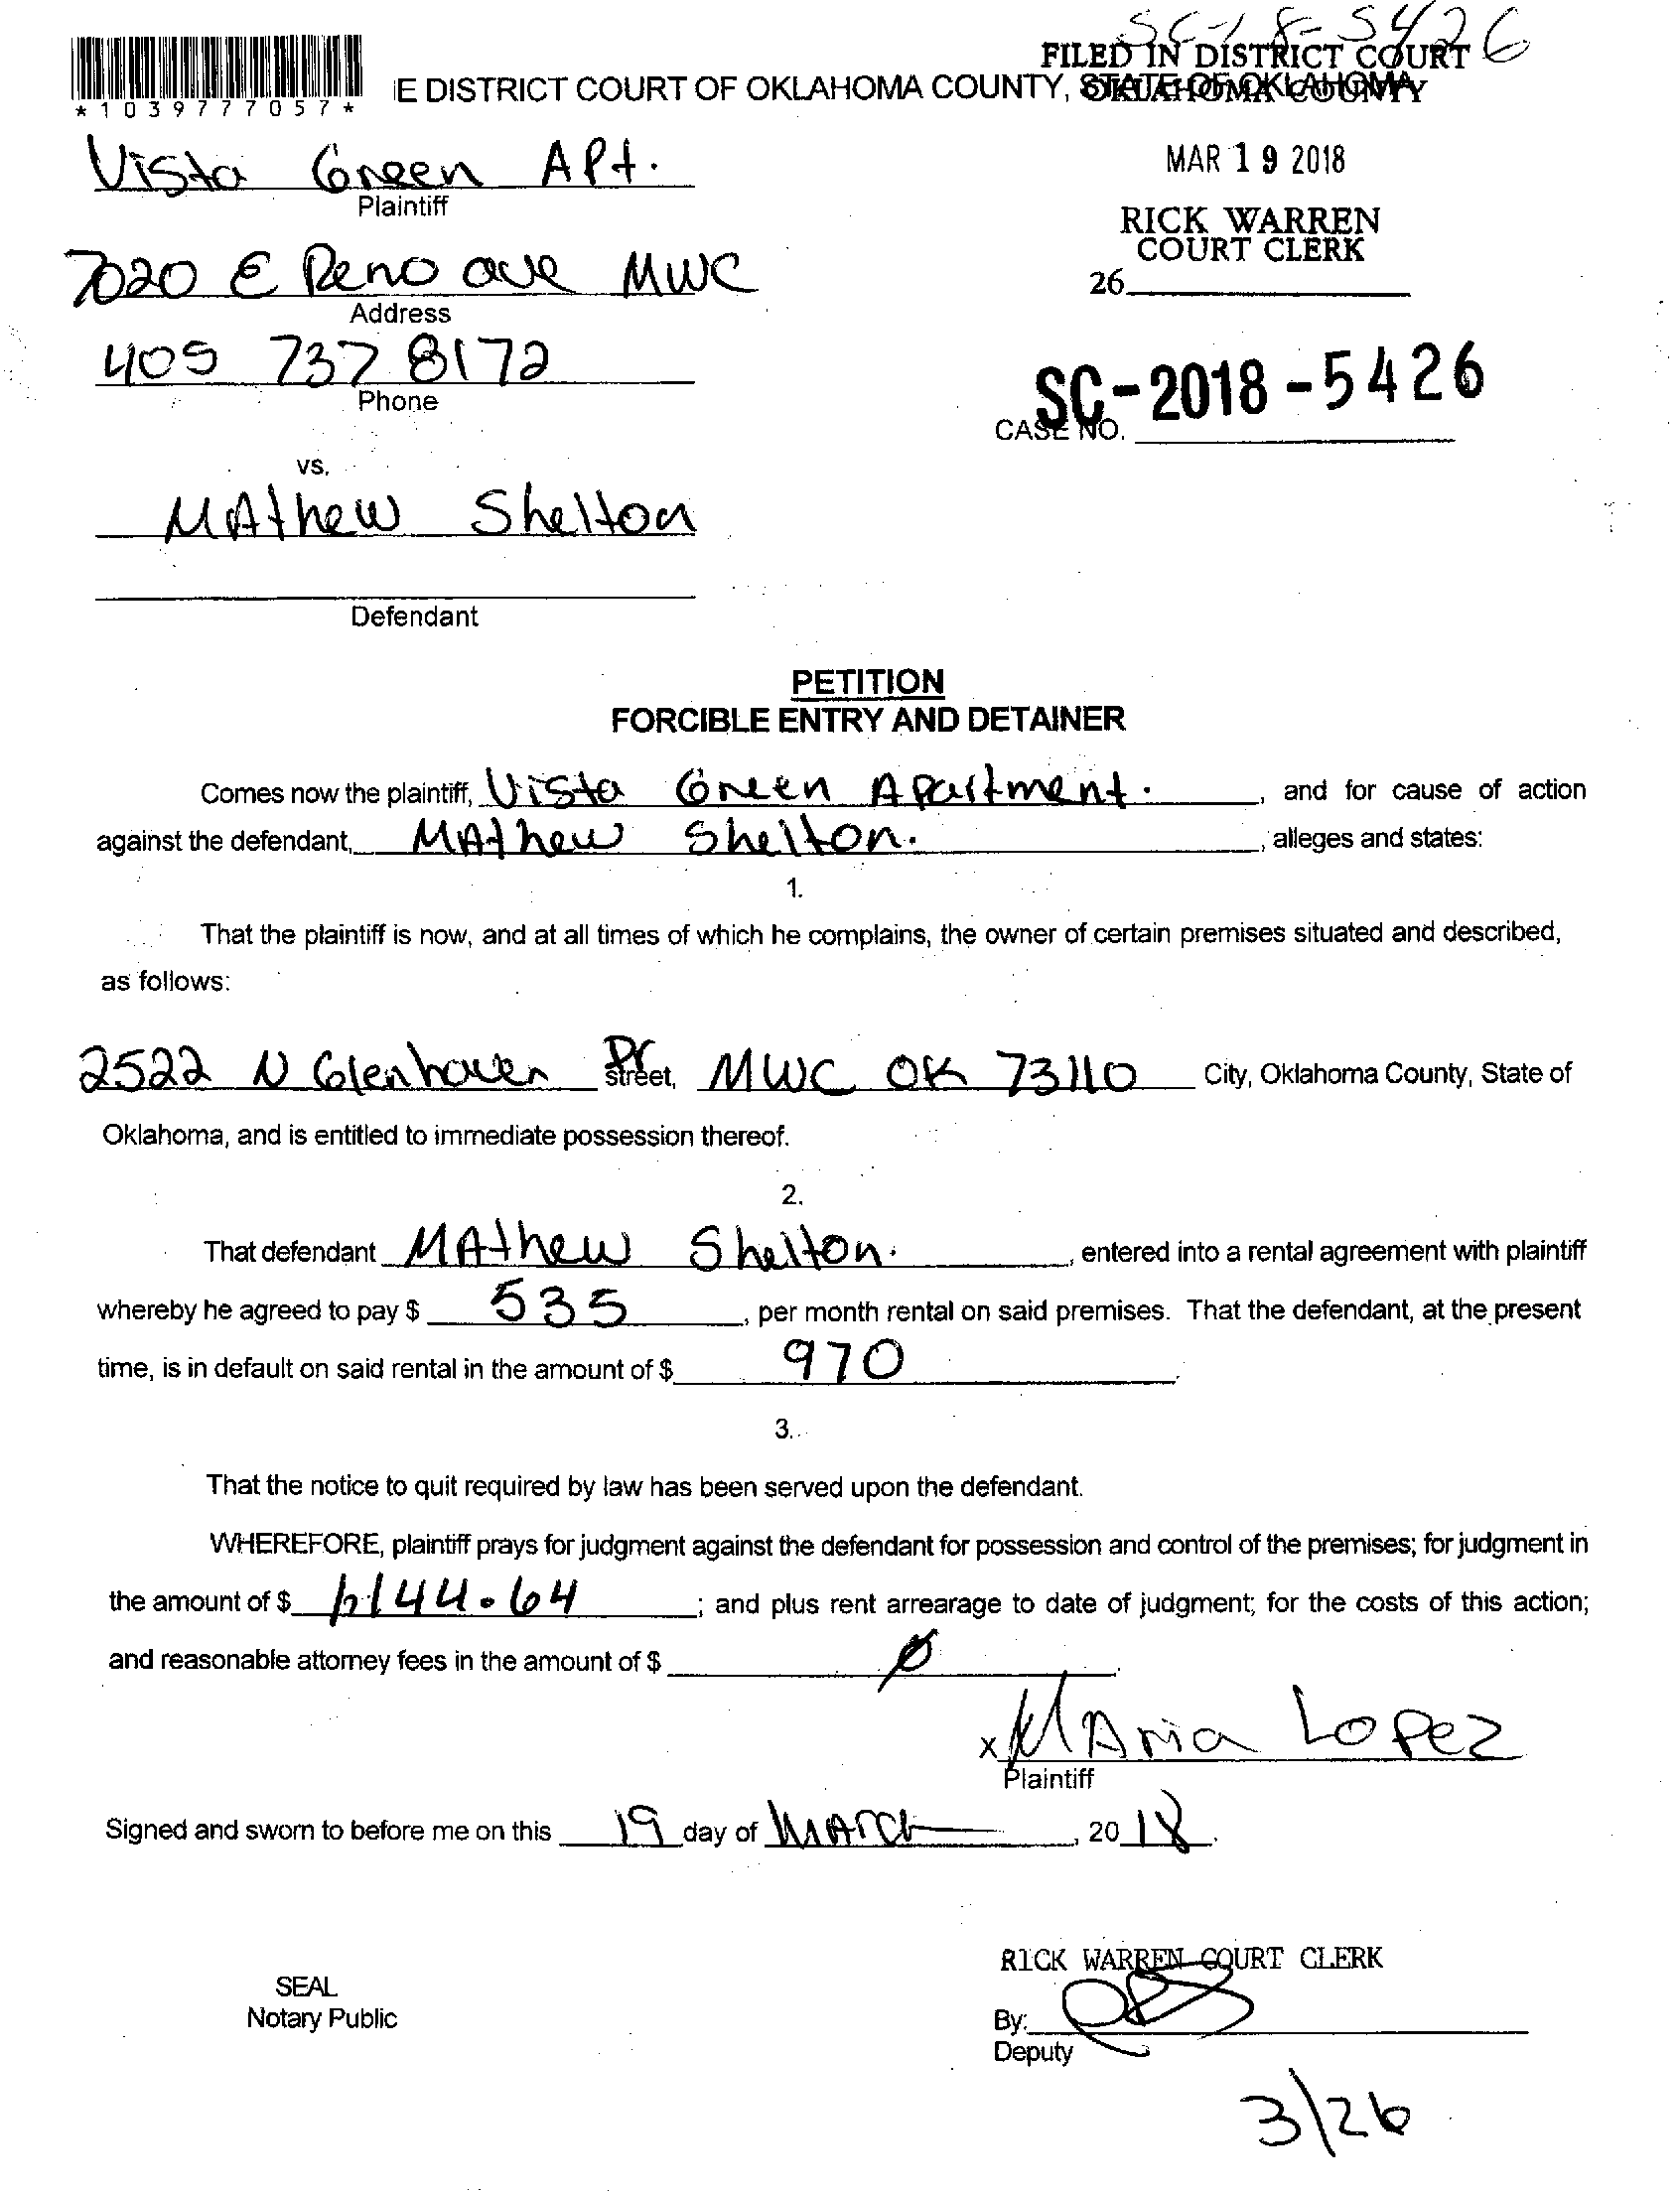 SC-18-5426
FILED IN DISTRICT COURT
OKLAHOMA COUNTY
*1039777057*
E DISTRICT COURT OF OKLAHOMA COUNTY, STATE OF OKLAHOMA
Vista Green APt.
Plaintiff
MAR 19 2018
RICK WARREN
COURT CLERK
7020 E Reno ave MWC
Address
26
405 737 8172
Phone
SC-2018-5426
CASE NO.
vs.
MAthew Shelton
Defendant
PETITION
FORCIBLE ENTRY AND DETAINER
Comes now the plaintiff, Vista Green Apartment. , and for cause of action
against the defendant, MAthew Shelton. , alleges and states:
1.
That the plaintiff is now, and at all times of which he complains, the owner of certain premises situated and described,
as follows:
2522 N Glenhaven Dr. street, MWC OK 73110 City, Oklahoma County, State of
Oklahoma, and is entitled to immediate possession thereof.
2.
That defendant MAthew Shelton. , entered into a rental agreement with plaintiff
whereby he agreed to pay $ 535 , per month rental on said premises. That the defendant, at the present
time, is in default on said rental in the amount of $ 970 .
3.
That the notice to quit required by law has been served upon the defendant.
WHEREFORE, plaintiff prays for judgment against the defendant for possession and control of the premises; for judgment in
the amount of $ 144.64 ; and plus rent arrearage to date of judgment; for the costs of this action;
and reasonable attorney fees in the amount of $ Ø .
x MAria Lopez
Plaintiff
Signed and sworn to before me on this 19 day of MArch , 20 18 .
RICK WARREN COURT CLERK
SEAL
Notary Public
By:
Deputy
3/26